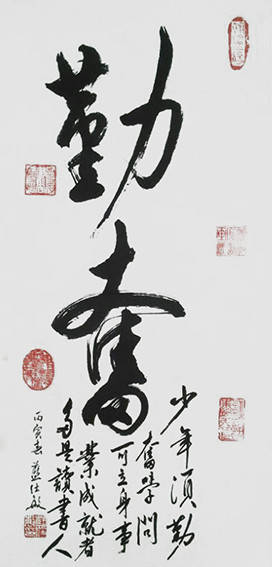 勤奮
少年須勤
奮學問
可立身事
業成就者
多是讀書人
丙寅春